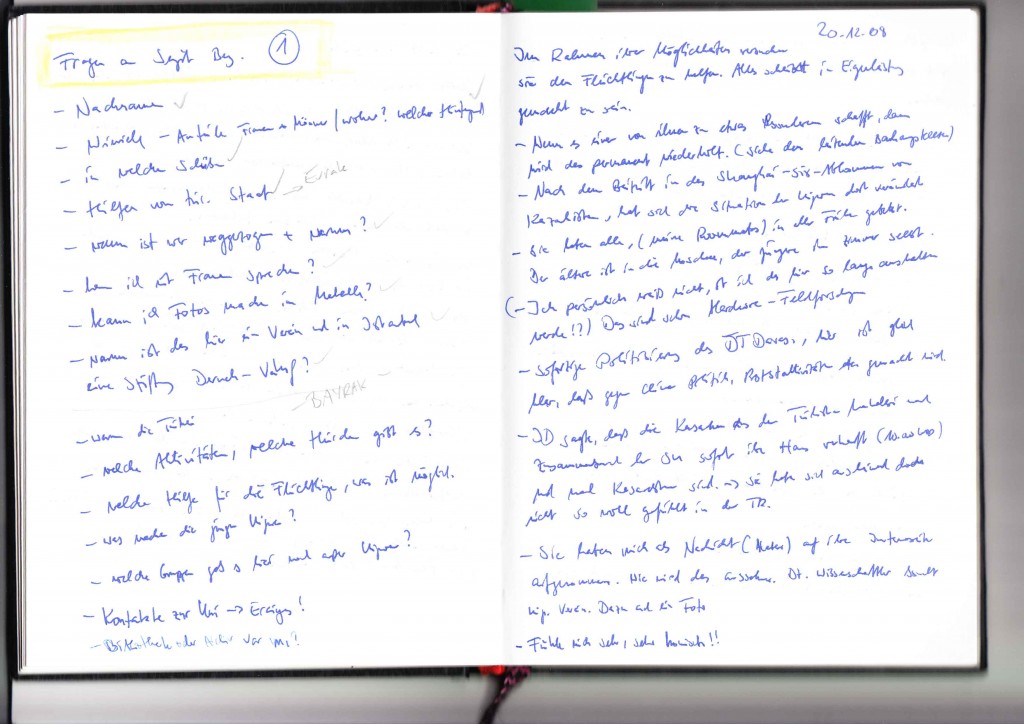 Fragen an Seyit Bey. 1
- Nachname
- Hinweis - Anteile Frauen + Männer / woher? welcher Hintergrund
- in welche Schulen
- Hilfen von tür. Staat
→ Erzähle
- wann ist wer weggezogen + warum?
- kann ich mit Frauen sprechen?
- kann ich Fotos machen in Mahalle?
- Warum ist das hier ein Verein und in Istanbul
eine Stiftung Dernek - Vakıf?
- BAYRAK -
- warum die Türkei
- welche Aktivitäten, welche Hürden gibt es?
- welche Hilfe für die Flüchtlinge, was ist möglich.
- was machen die jungen Uiguren?
- welche Gruppen gab es hier noch außer Uiguren?
- Kontakte zur Uni → Erciyes!
- Bibliothek oder Archiv var mı?
20.12.08
Im Rahmen ihrer Möglichkeiten würden
sie den Flüchtlingen zu helfen. Alles scheint in Eigenleistung
gemacht zu sein.
- Wenn es einer von ihnen zu etwas Besonderem schafft, dann
wird das permanent wiederholt. (siehe den leitenden)
- Nach dem Beitritt in das Shanghai-Six-Abkommen von
Kazakhstan, hat sich die Situation der Uiguren dort verändert
- Sie beten alle, (meine Roommates) in aller Frühe gebetet.
Der ältere ist in die Moschee, der jüngere im Zimmer selbst.
(- Ich persönlich weiß nicht, ob ich das hier so lange aushalten
werde!?) Das wird schon Hardware-Feldforschung
- sofortige Politisierung des DT Daseins, hier ist ganz
klar, daß gegen chine. Politik, gemacht wird.
- JD sagte, daß die Kasachen aus der Türkei
Zusammenbruch der SU sofort ihr Haus verkauft
und nach Kasachstan sind. → sie haben sich anscheinend doch
nicht so wohl gefühlt in der TR.
- Sie haben mich als Nachricht (Haber) auf ihre Internetseite
aufgenommen. Wie wird das aussehen. Dt. Wissenschaftler besucht
uig. Verein. Dazu auch ein Foto
- Fühle mich sehr, sehr komisch!!